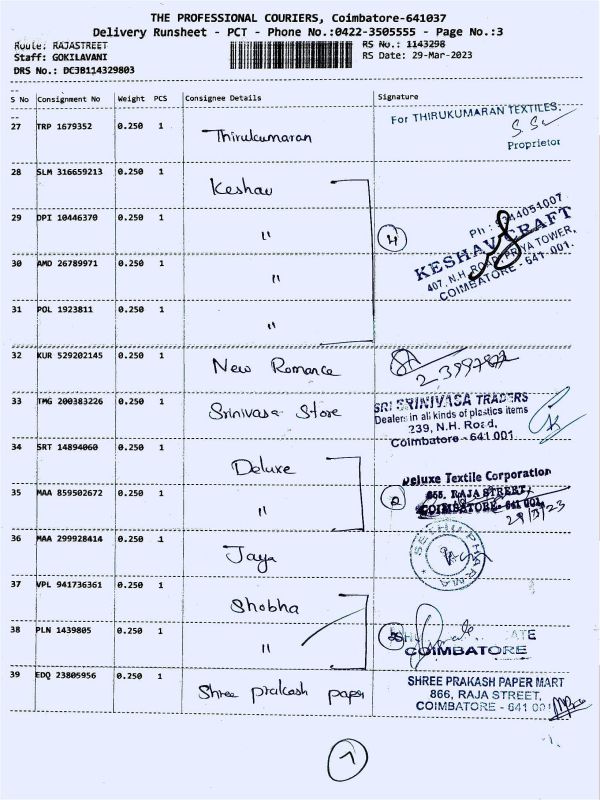 THE PROFESSIONAL COURIERS, Coimbatore-641037
Delivery Runsheet - PCT - Phone No.:0422-3505555 - Page No.:3
Route: RAJASTREET
RS No.: 1143298
Staff: GOKILAVANI
RS Date: 29-Mar-2023
DRS No.: DCJB114329803
S No Consignment No Weight PCS Consignee Details Signature
27 TRP 1679352 0.250 1 Thirukumaran
For THIRUKUMARAN TEXTILES,
Proprietor
28 SLM 316659213 0.250 1 Keshav
29 DPI 10446370 0.250 1 "
4
KESHAV CRAFT
407, N.H. ROAD, PRIYA TOWER,
COIMBATORE - 641 001.
30 AMD 26789971 0.250 1 "
31 POL 1923811 0.250 1 "
32 KUR 529202145 0.250 1 New Romance
33 TMG 200383226 0.250 1 Srinivasa Store
SRI SRINIVASA TRADERS
Dealers in all kinds of plastics items
239, N.H. Road,
Coimbatore - 641 001
34 SRT 14894060 0.250 1 Deluxe
Deluxe Textile Corporation
35 MAA 859502672 0.250 1 "
2
RAJA STREET,
COIMBATORE - 641 001.
29/3/23
36 MAA 299928414 0.250 1 Jaya
SETHU PHARMA
37 VPL 941736361 0.250 1 Shobha
38 PLN 1439805 0.250 1 "
COIMBATORE
39 EDQ 23805956 0.250 1 Shree prakash paper
SHREE PRAKASH PAPER MART
866, RAJA STREET,
COIMBATORE - 641 001
7